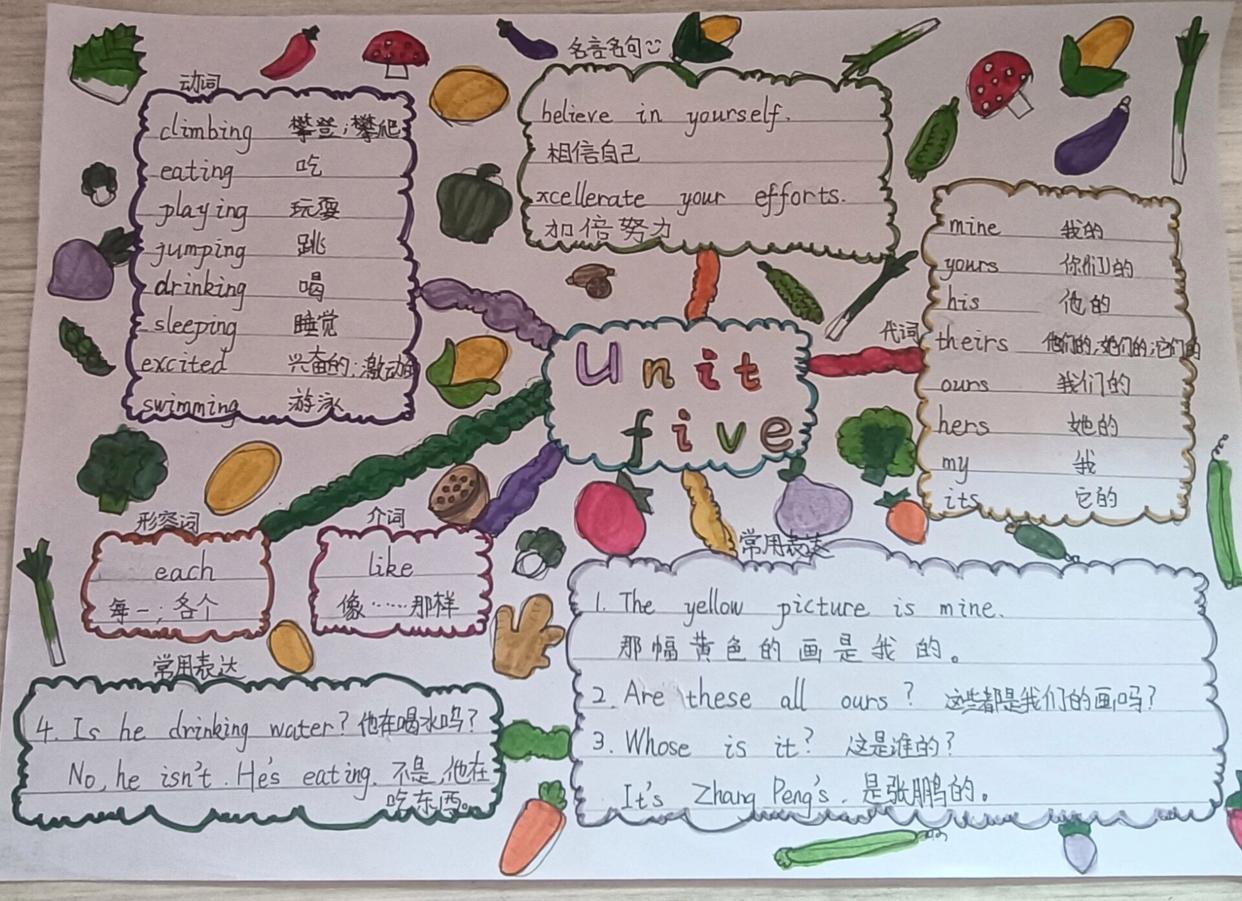 动词
climbing 攀登;攀爬
eating 吃
playing 玩耍
jumping 跳
drinking 喝
sleeping 睡觉
excited 兴奋的;激动的
swimming 游泳
名言名句
believe in yourself.
相信自己
xcellerate your efforts.
加倍努力
Unit
five
代词
mine 我的
yours 你们的
his 他的
theirs 他们的;她们的;它们的
ours 我们的
hers 她的
my 我
its 它的
形容词
each
每一;各个
介词
like
像……那样
常用表达
1. The yellow picture is mine.
那幅黄色的画是我的。
2. Are these all ours? 这些都是我们的画吗?
3. Whose is it? 这是谁的?
It's Zhang Peng's. 是张鹏的。
常用表达
4. Is he drinking water? 他在喝水吗?
No, he isn't. He's eating. 不是,他在
吃东西。